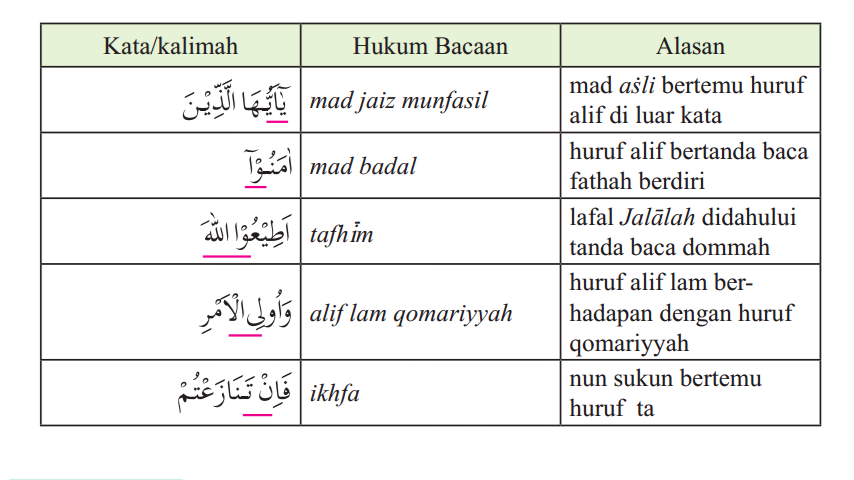 Kata/kalimah Hukum Bacaan Alasan
يٰٓاَيُّهَا الَّذِيْنَ mad jaiz munfasil mad aṡli bertemu huruf
alif di luar kata
اٰمَنُوْٓا mad badal huruf alif bertanda baca
fathah berdiri
اَطِيْعُوا اللّٰهَ tafhīm lafal Jalālah didahului
tanda baca dommah
وَاُولِى الْاَمْرِ alif lam qomariyyah huruf alif lam ber-
hadapan dengan huruf
qomariyyah
فَاِنْ تَنَازَعْتُمْ ikhfa nun sukun bertemu
huruf ta